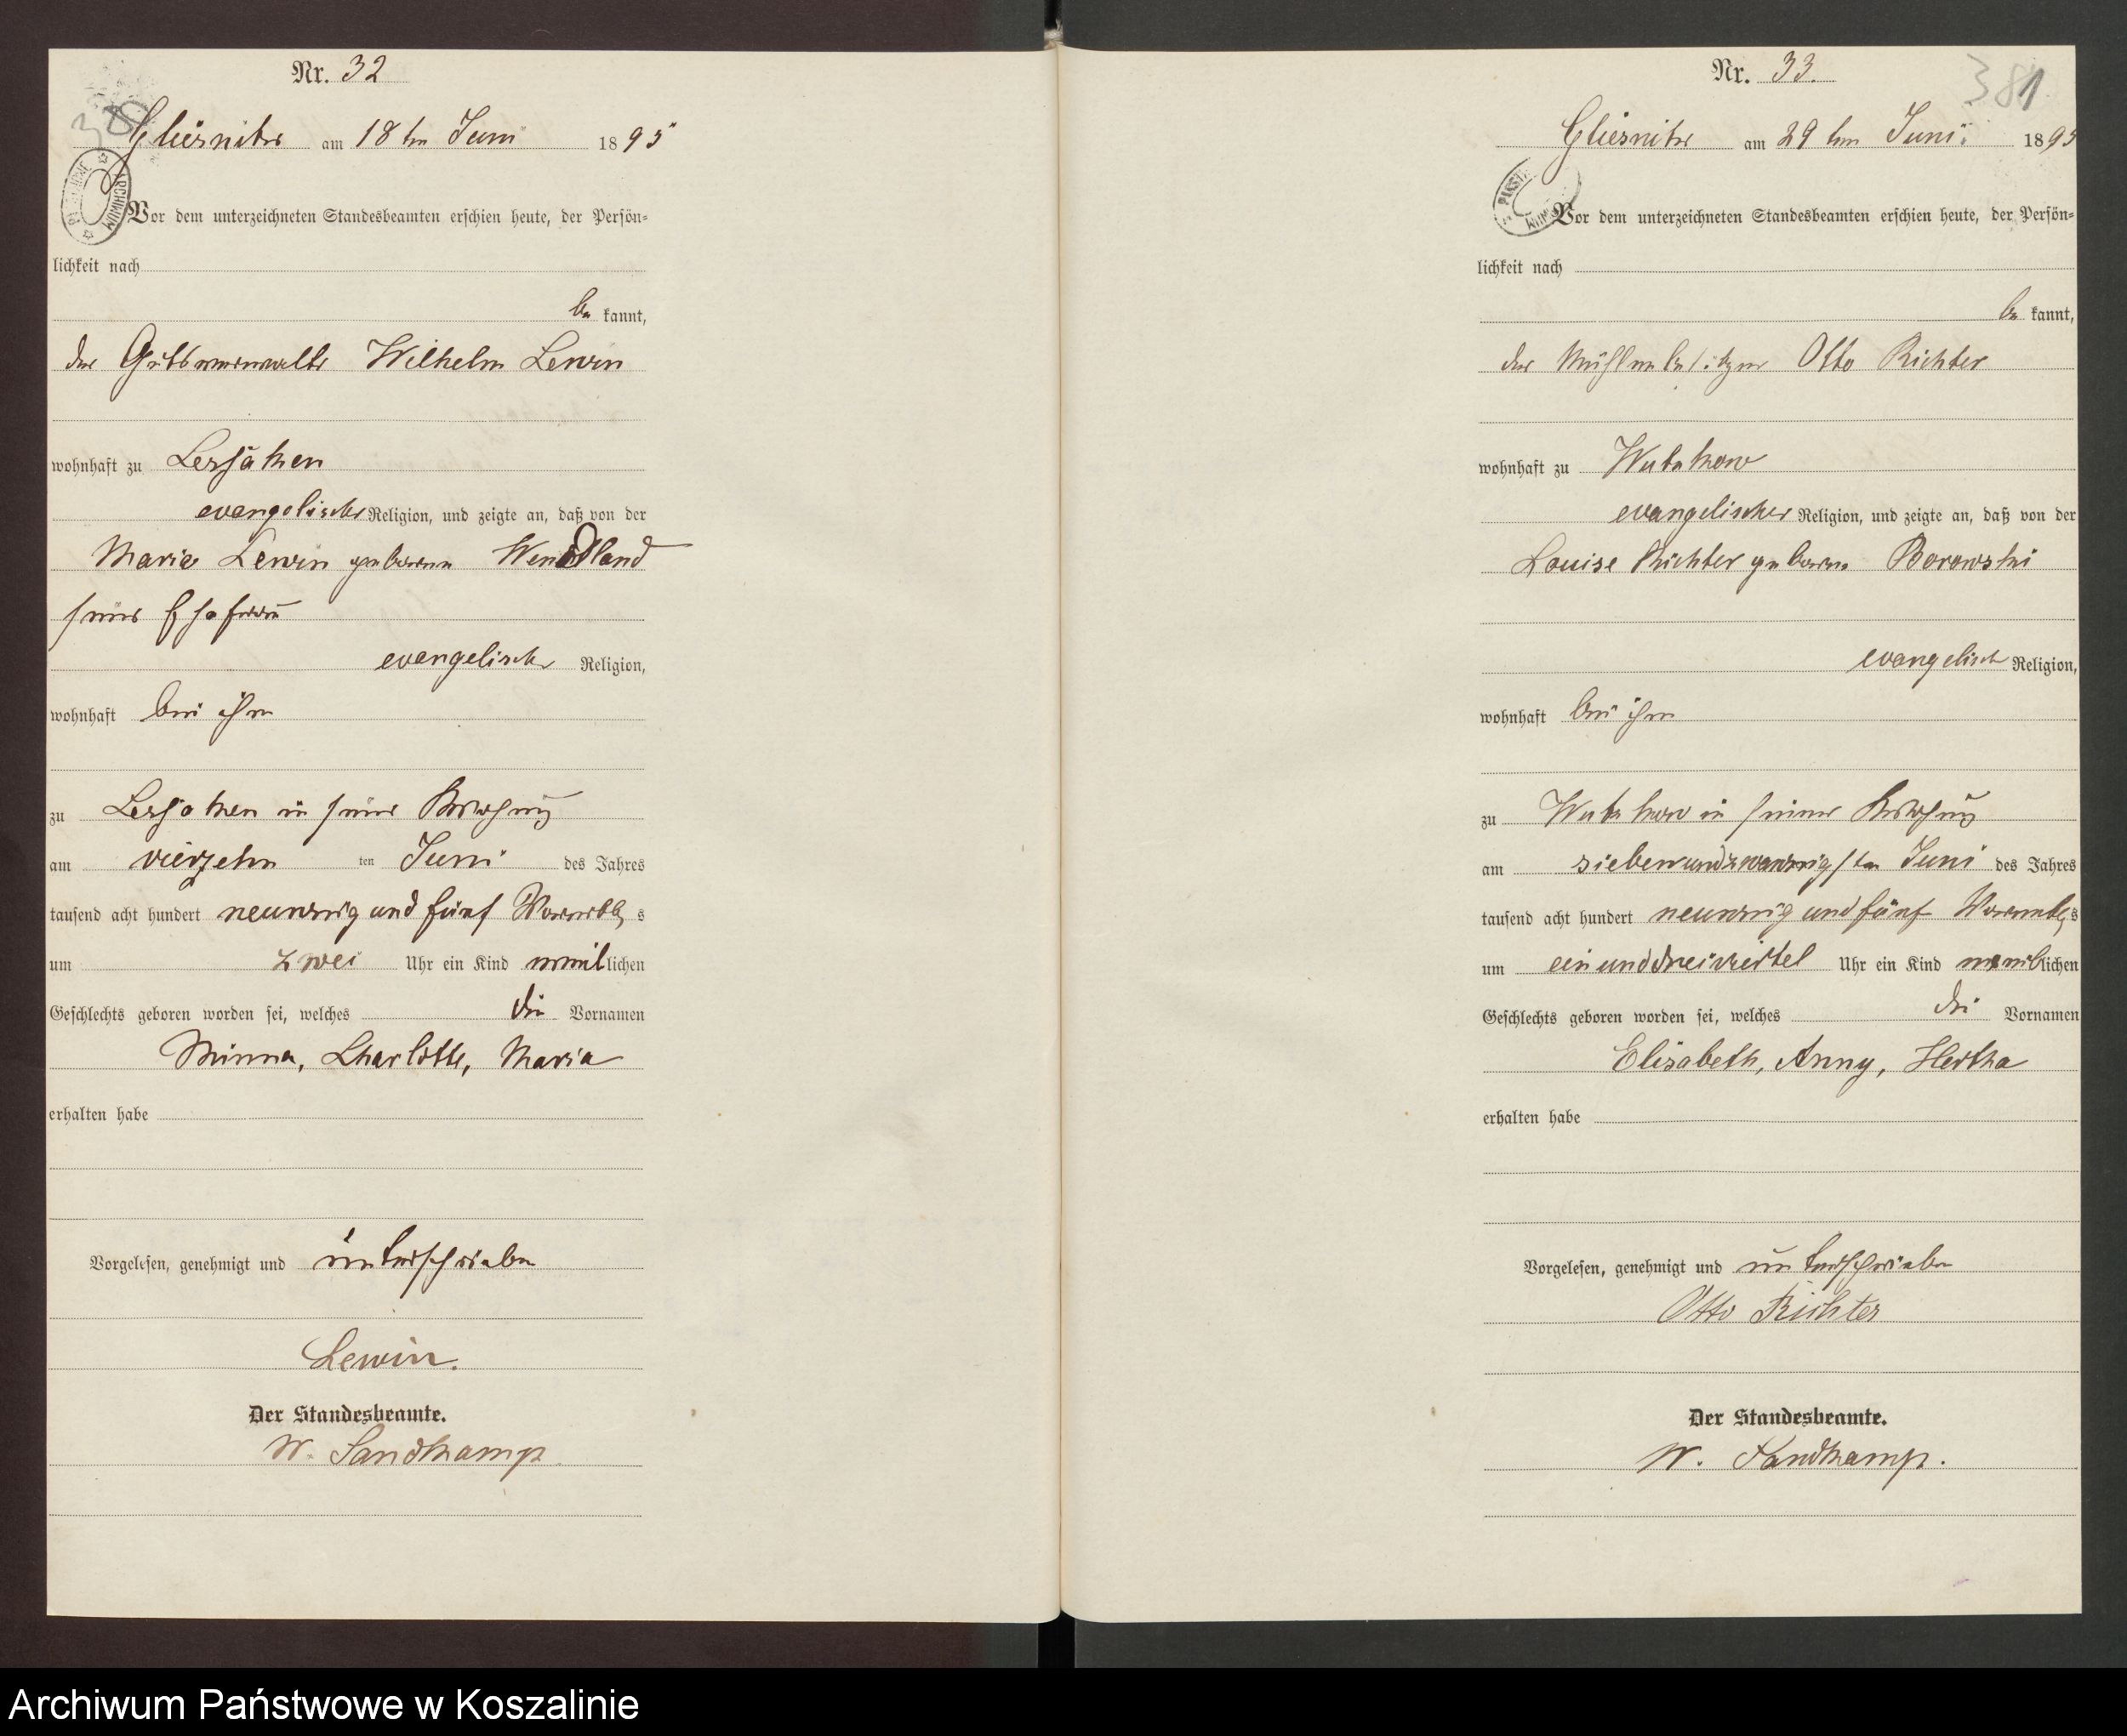 Nr. 32
380
Gliesnitz am 18ten Juni 1895
ARCHIWUM
Vor dem unterzeichneten Standesbeamten erschien heute, der Persön-
lichkeit nach
be kannt,
der Gutsverwalter Wilhelm Lewin
wohnhaft zu Lessaken
evangelischer Religion, und zeigte an, daß von der
Maria Lewin geborene Wendland
seiner Ehefrau
evangelischer Religion,
wohnhaft bei ihm
zu Lessaken in seiner Wohnung
am vierzehn ten Juni des Jahres
tausend acht hundert neunzig und fünf Vormittags
um zwei Uhr ein Kind weiblichen
Geschlechts geboren worden sei, welches die Vornamen
Minna, Charlotte, Maria
erhalten habe
Vorgelesen, genehmigt und unterschrieben
Lewin.
Der Standesbeamte.
W. Sandkamp.
Nr. 33.
381
Gliesnitz am 29ten Juni 1895
Vor dem unterzeichneten Standesbeamten erschien heute, der Persön-
lichkeit nach
be kannt,
der Mühlenbesitzer Otto Richter
wohnhaft zu Wutzkow
evangelischer Religion, und zeigte an, daß von der
Louise Richter geborene Borowski
evangelisch Religion,
wohnhaft bei ihm
zu Wutzkow in seiner Wohnung
am siebenundzwanzigsten Juni des Jahres
tausend acht hundert neunzig und fünf Vormittags
um ein und dreiviertel Uhr ein Kind weiblichen
Geschlechts geboren worden sei, welches die Vornamen
Elisabeth, Anny, Hertha
erhalten habe
Vorgelesen, genehmigt und unterschrieben
Otto Richter
Der Standesbeamte.
W. Sandkamp.
Archiwum Państwowe w Koszalinie